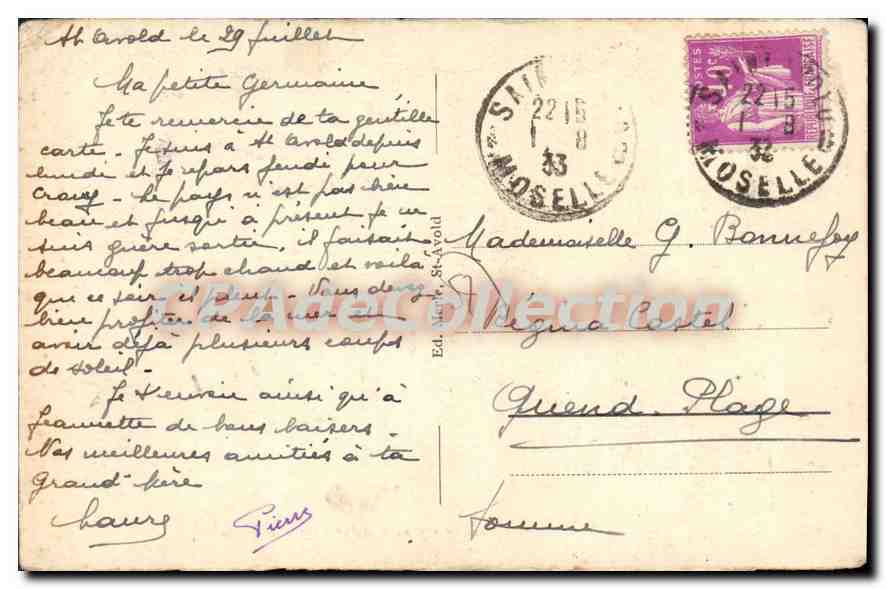 St Avold le 29 Juillet
Ma petite Germaine
Je te remercie de ta gentille
carte. Je suis à St Avold depuis
lundi et je repars jeudi pour
Le pays n'est pas bien
beau et jusqu'à présent je ne
suis guère sortie, il faisait
beaucoup trop chaud et voilà
que ce soir il pleut. Vous devez
bien profiter de la mer et
avoir déjà plusieurs coups
de soleil.
Je t'envoie ainsi qu'à
Jeannette de bons baisers.
Nos meilleures amitiés à ta
Grand'Mère
Laure
Pierre
Ed. Merle, St-Avold
SAINT
22 15
1 8
33
MOSELLE
POSTES
REPUBLIQUE FRANCAISE
SAINT AVOLD
22 15
1 8
33
MOSELLE
Mademoiselle G. Bonnefoy
Régina Castel
Quend-Plage
Somme
CPAgeCollection